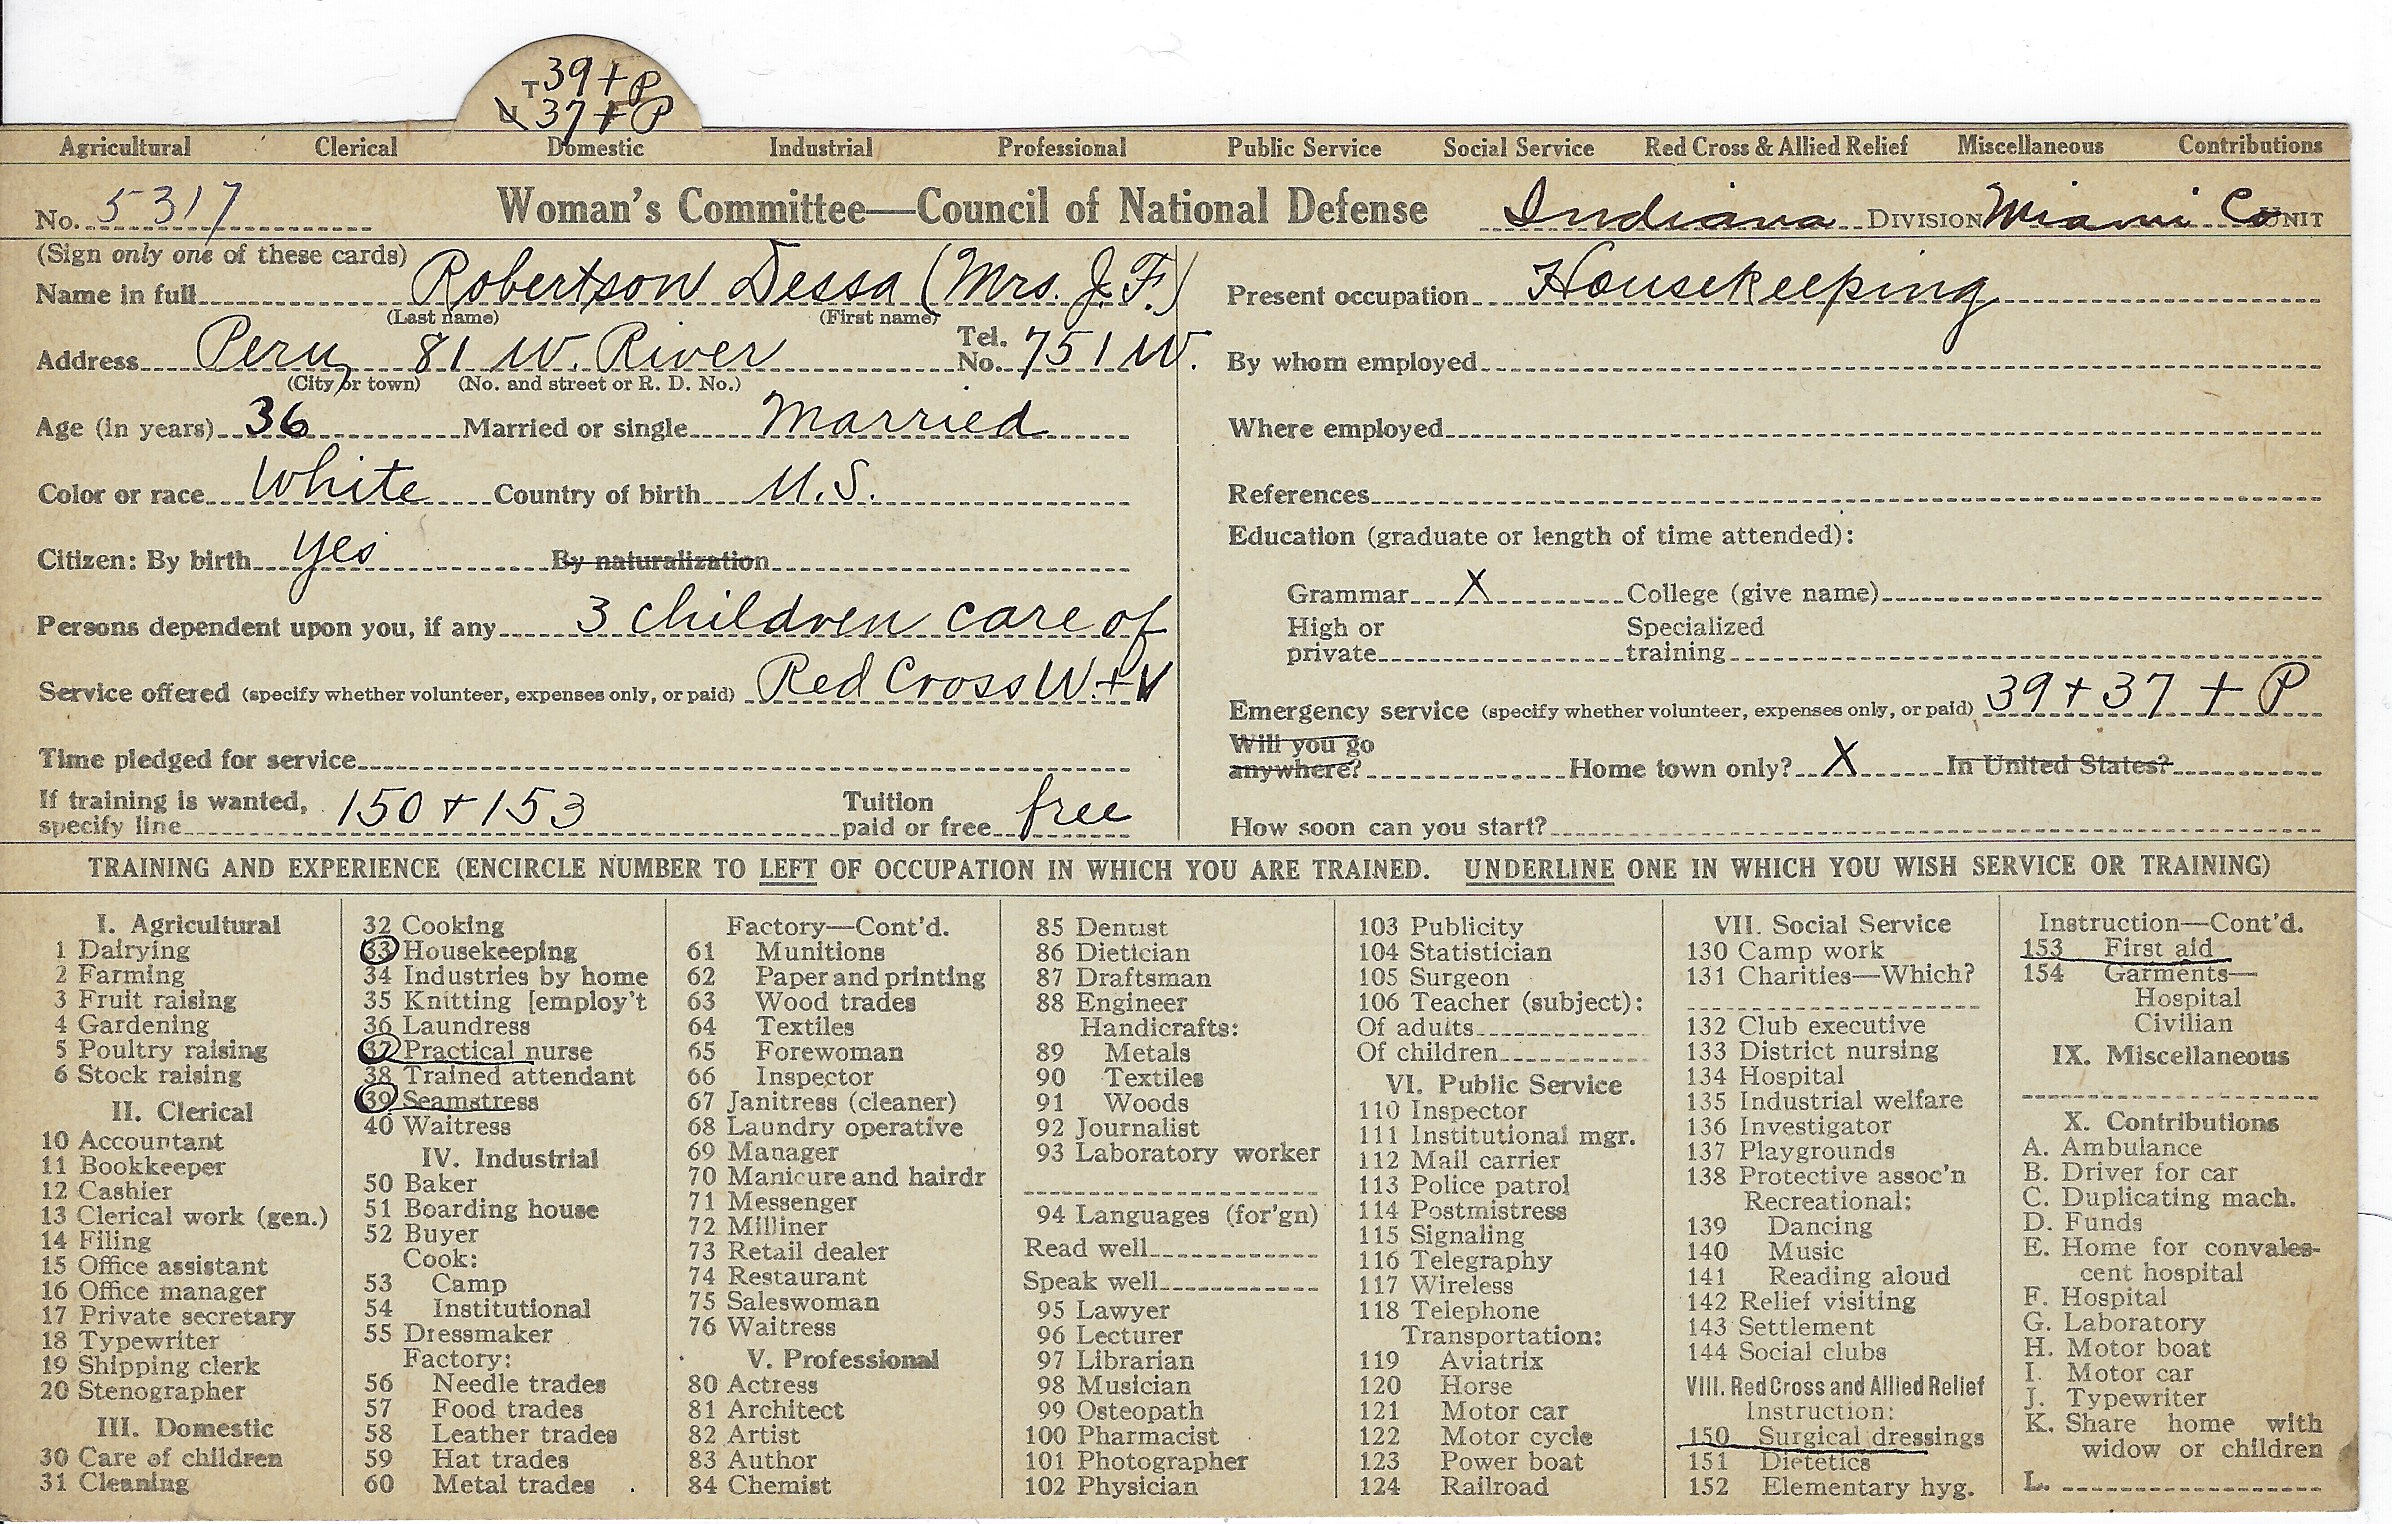 T 39 + P
U 37 + P
Agricultural Clerical Domestic Industrial Professional Public Service Social Service Red Cross & Allied Relief Miscellaneous Contributions
No. 5317 Woman's Committee—Council of National Defense Indiana DIVISION Miami Co UNIT
(Sign only one of these cards)
Name in full Robertson Dessa (Mrs. J. F.)
(Last name) (First name)
Address Peru, 81 W. River Tel. No. 751 W.
(City or town) (No. and street or R. D. No.)
Age (in years) 36 Married or single Married
Color or race White Country of birth U.S.
Citizen: By birth yes By naturalization
Persons dependent upon you, if any 3 children care of
Service offered (specify whether volunteer, expenses only, or paid) Red Cross W. + V
Time pledged for service
If training is wanted,
specify line 150 + 153 Tuition
paid or free free
Present occupation Housekeeping
By whom employed
Where employed
References
Education (graduate or length of time attended):
Grammar X College (give name)
High or
private
Specialized
training
Emergency service (specify whether volunteer, expenses only, or paid) 39 + 37 + P
Will you go
anywhere? Home town only? X In United States?
How soon can you start?
TRAINING AND EXPERIENCE (ENCIRCLE NUMBER TO LEFT OF OCCUPATION IN WHICH YOU ARE TRAINED. UNDERLINE ONE IN WHICH YOU WISH SERVICE OR TRAINING)
I. Agricultural
1 Dairying
2 Farming
3 Fruit raising
4 Gardening
5 Poultry raising
6 Stock raising
II. Clerical
10 Accountant
11 Bookkeeper
12 Cashier
13 Clerical work (gen.)
14 Filing
15 Office assistant
16 Office manager
17 Private secretary
18 Typewriter
19 Shipping clerk
20 Stenographer
III. Domestic
30 Care of children
31 Cleaning
32 Cooking
33 Housekeeping
34 Industries by home
35 Knitting [employ't
36 Laundress
37 Practical nurse
38 Trained attendant
39 Seamstress
40 Waitress
IV. Industrial
50 Baker
51 Boarding house
52 Buyer
Cook:
53 Camp
54 Institutional
55 Dressmaker
Factory:
56 Needle trades
57 Food trades
58 Leather trades
59 Hat trades
60 Metal trades
Factory—Cont'd.
61 Munitions
62 Paper and printing
63 Wood trades
64 Textiles
65 Forewoman
66 Inspector
67 Janitress (cleaner)
68 Laundry operative
69 Manager
70 Manicure and hairdr
71 Messenger
72 Milliner
73 Retail dealer
74 Restaurant
75 Saleswoman
76 Waitress
V. Professional
80 Actress
81 Architect
82 Artist
83 Author
84 Chemist
85 Dentist
86 Dietician
87 Draftsman
88 Engineer
Handicrafts:
89 Metals
90 Textiles
91 Woods
92 Journalist
93 Laboratory worker
94 Languages (for'gn)
Read well
Speak well
95 Lawyer
96 Lecturer
97 Librarian
98 Musician
99 Osteopath
100 Pharmacist
101 Photographer
102 Physician
103 Publicity
104 Statistician
105 Surgeon
106 Teacher (subject):
Of adults
Of children
VI. Public Service
110 Inspector
111 Institutional mgr.
112 Mail carrier
113 Police patrol
114 Postmistress
115 Signaling
116 Telegraphy
117 Wireless
118 Telephone
Transportation:
119 Aviatrix
120 Horse
121 Motor car
122 Motor cycle
123 Power boat
124 Railroad
VII. Social Service
130 Camp work
131 Charities—Which?
132 Club executive
133 District nursing
134 Hospital
135 Industrial welfare
136 Investigator
137 Playgrounds
138 Protective assoc'n
Recreational:
139 Dancing
140 Music
141 Reading aloud
142 Relief visiting
143 Settlement
144 Social clubs
VIII. Red Cross and Allied Relief
Instruction:
150 Surgical dressings
151 Dietetics
152 Elementary hyg.
Instruction—Cont'd.
153 First aid
154 Garments—
Hospital
Civilian
IX. Miscellaneous
X. Contributions
A. Ambulance
B. Driver for car
C. Duplicating mach.
D. Funds
E. Home for convales-
cent hospital
F. Hospital
G. Laboratory
H. Motor boat
I. Motor car
J. Typewriter
K. Share home with
widow or children
L.